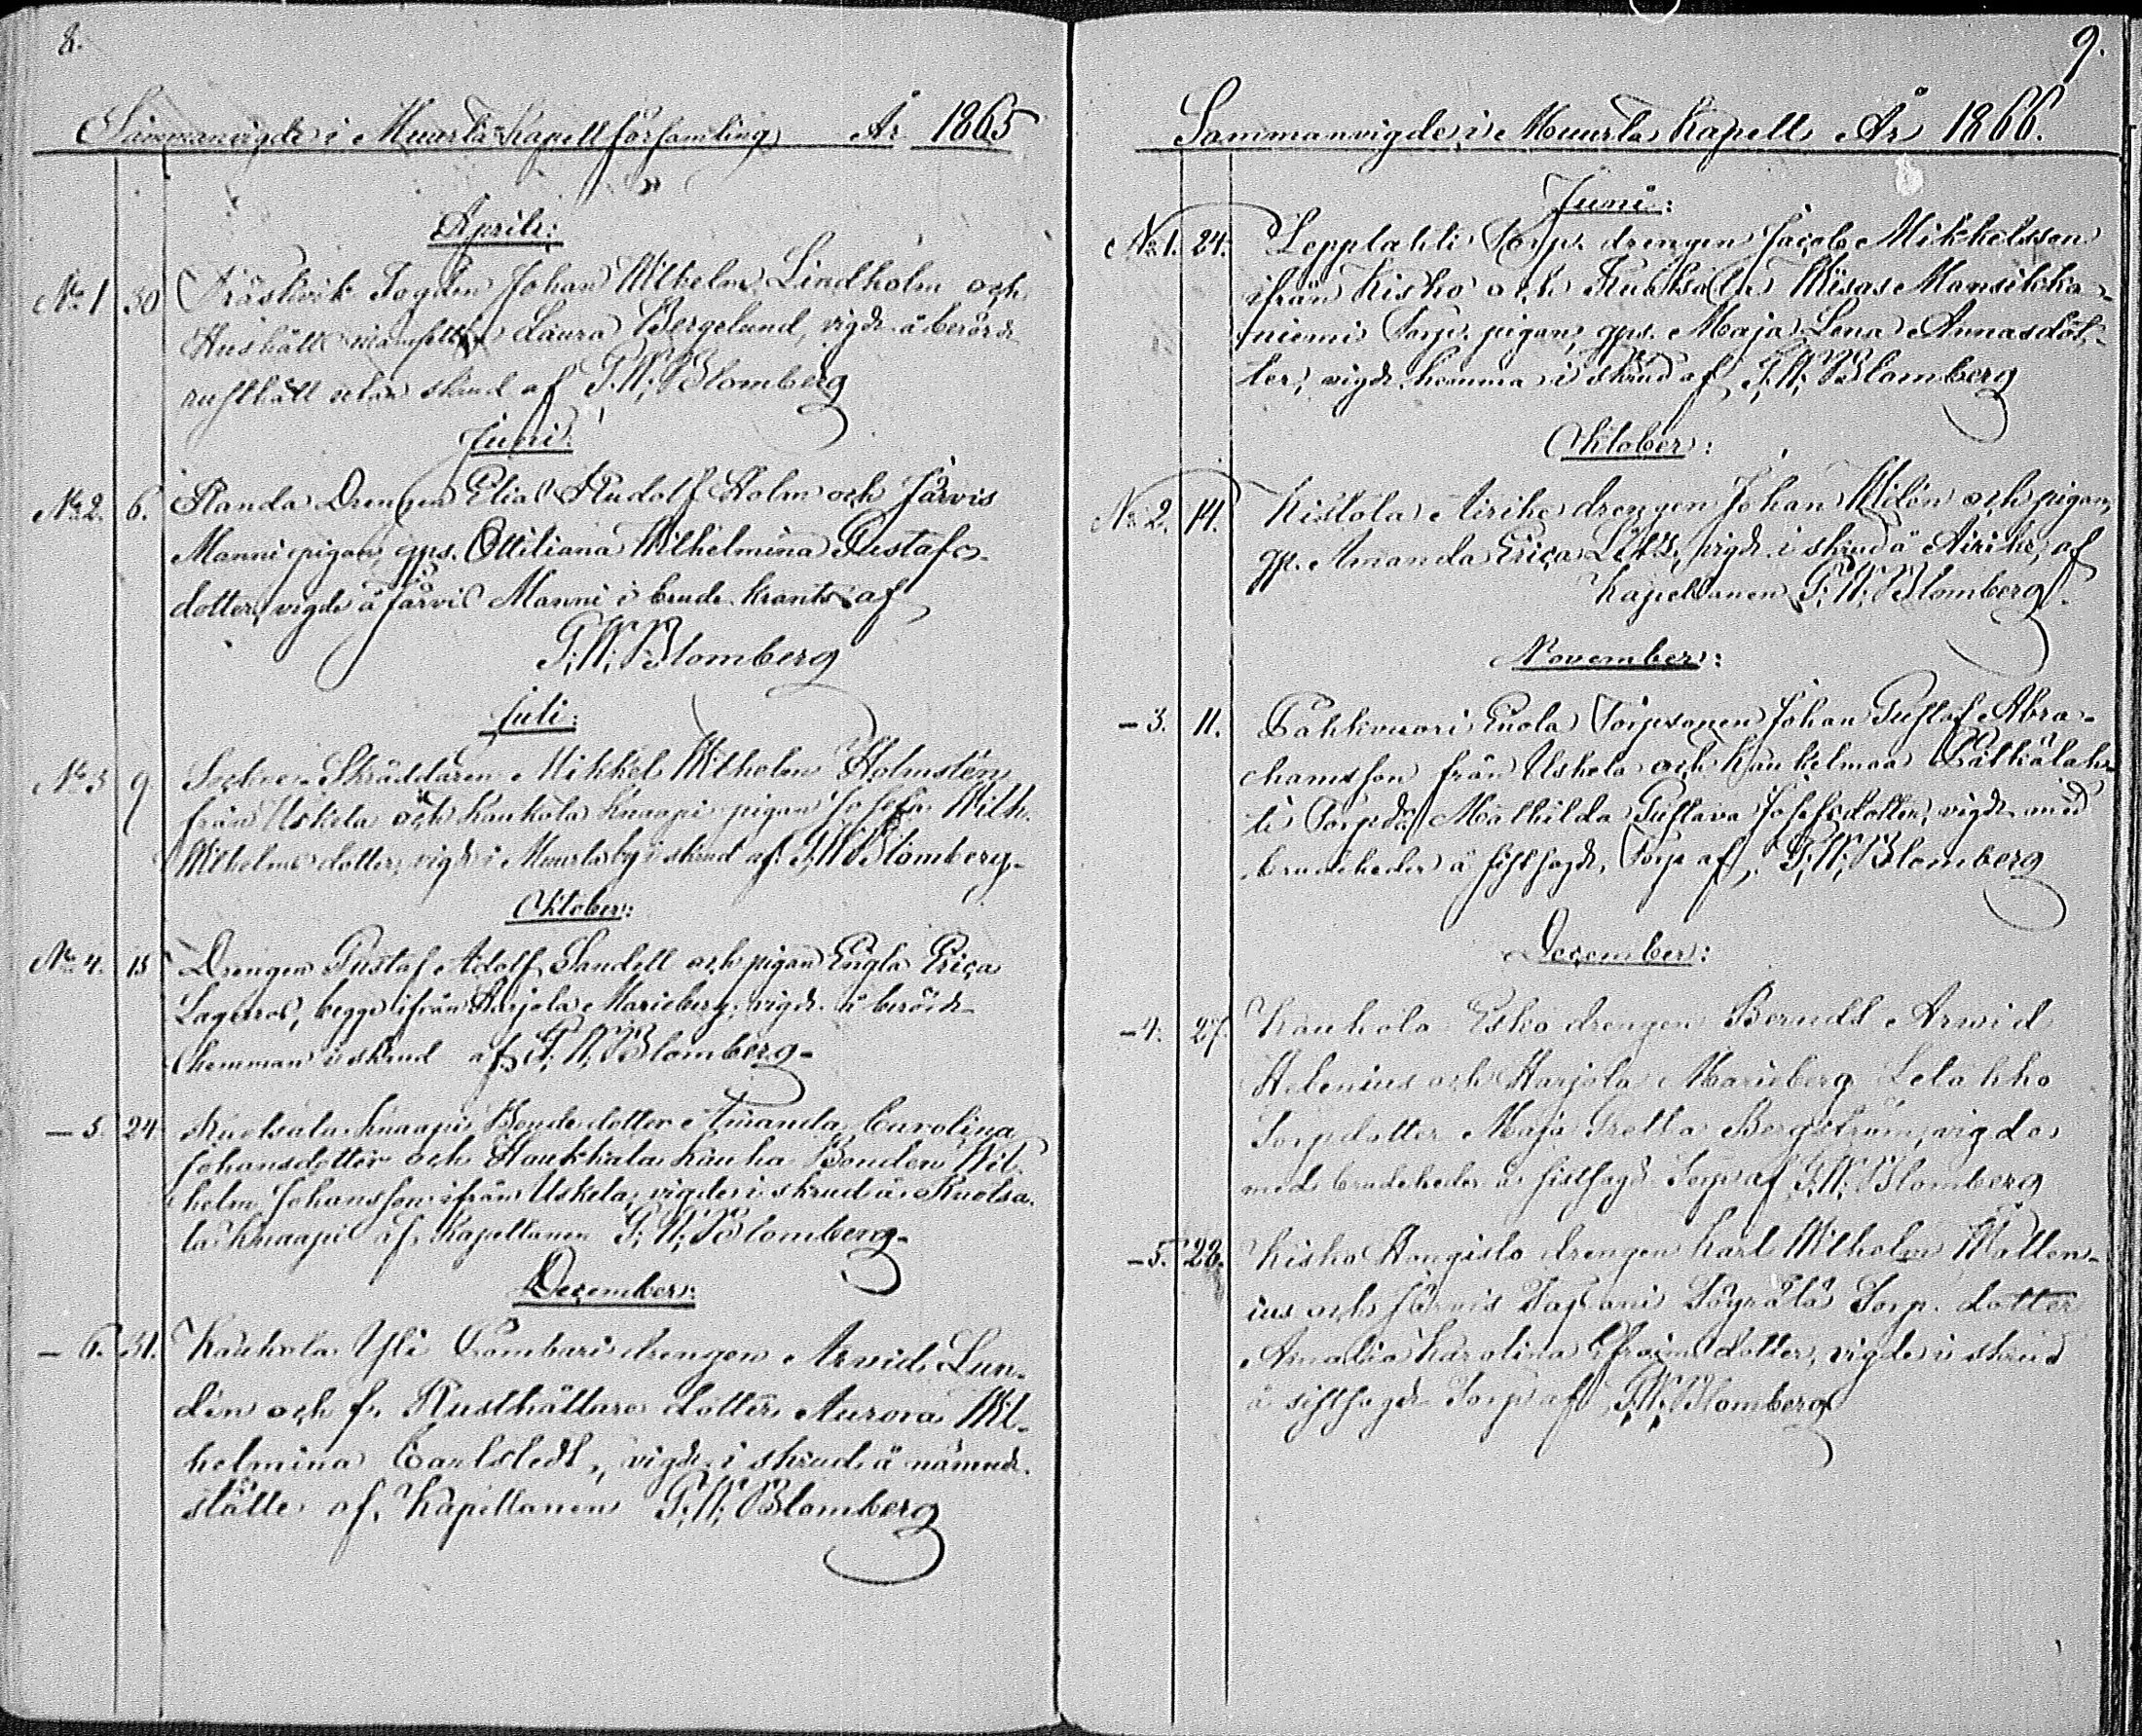 8.
Sammanvigde i Muurla Kapellförsamling År 1865
Aprill:
No 1 30 Fogden Johan Wilhelm Lindholm och
Hushålls mamsellen Laura Bergelund, vigde å berörde
rusthåll utan skrud af G. W. Blomberg
Juni:
No 2. 6. Randa Drengen Elias Rudolf Holm och Järvis
Manni pigan, gps. Ottiliana Wilhelmina Gustafs-
dotter, vigde å Järvis Manni i brude krants af
G. W. Blomberg
Juli:
No 3 9 Sockne-Skräddaren Mikkel Wilhelm Holmstén
från Uskela och Kaukola Knaapi pigan Josefa Wilh.
Wilhelms dotter, vigde i Muurlaby i skrud af G. W. Blomberg.
Oktober:
No 4. 15 Drengen Gustaf Adolf Sandell och pigan Engla Eriça
Lagerros, begge ifrån Harjola Marieberg, vigde å berörde
hemman i skrud af G. W. Blomberg.
- 5. 24 Ruotsala Knaapi Bonde dotter Amanda Carolina
Johansdotter och Haukkala Kauha Bonden Wil-
helm Johansson ifrån Uskela, vigde i skrud å Ruotsa-
la Knaapi af Kapellanen G. W. Blomberg.
December:
- 6. 31. Kaukola Yli drengen Arvid Lun-
din och f. Rusthållare dotter Aurora Wil-
helmina Carlstedt, vigde i skrud å nämnde
ställe af Kapellanen G. W. Blomberg
9.
Sammanvigde i Muurla Kapell År 1866.
Juni:
No 1. 24. Lepplahti Torp. drengen Jacob Mikkelsson
ifrån Kisko och Ruotsala Wisas Mansikka-
niemi Torp. pigan, gps. Maja Lena Annasdot-
ter, vigde hemma i skrud af G. W. Blomberg
Oktober:
No 2. 14. Kistola Airike drengen Johan Widén och pigan,
gp. Amanda Eriça vigde i skrud å Airike, af
Kapellanen G. W. Blomberg.
November:
- 3. 11. Torpsonen Johan Gustaf Abra-
hamsson från Uskela och Kaukelmaa
ti Torpdr. Mathilda Gustava Josefsdotter, vigde med
brudeheder å sistsagde Torp af G. W. Blomberg
December:
- 4. 27. Kaukola Esko drengen Berndt Arvid
Helenius och Harjola Marieberg Lelakko
Torpdotter Maja Gretta Bergström, vigde
med brudeheder å sistsagde Torp af G. W. Blomberg
- 5. 28. Kisko Hongisto drengen Karl Wilhelm Wallen-
ius och Järvis Tapani Töyrälä Torp. dotter
Amalia Karolina Efraims dotter, vigde i skrud
å sistsagde Torp af G. W. Blomberg